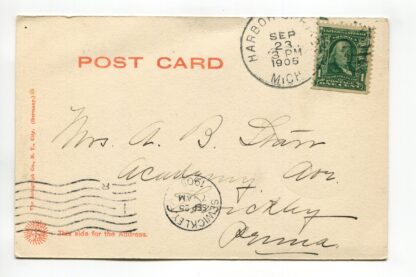 POST CARD
HARBOR
SEP
23
PM
1905
MICH
1
Mrs. A. B. Starr
Academy Ave.
Sewickley
Penna.
SEWICKLEY
SEP 25
AM
190
R
Co., N. Y. City. (Germany.)
This side for the Address.